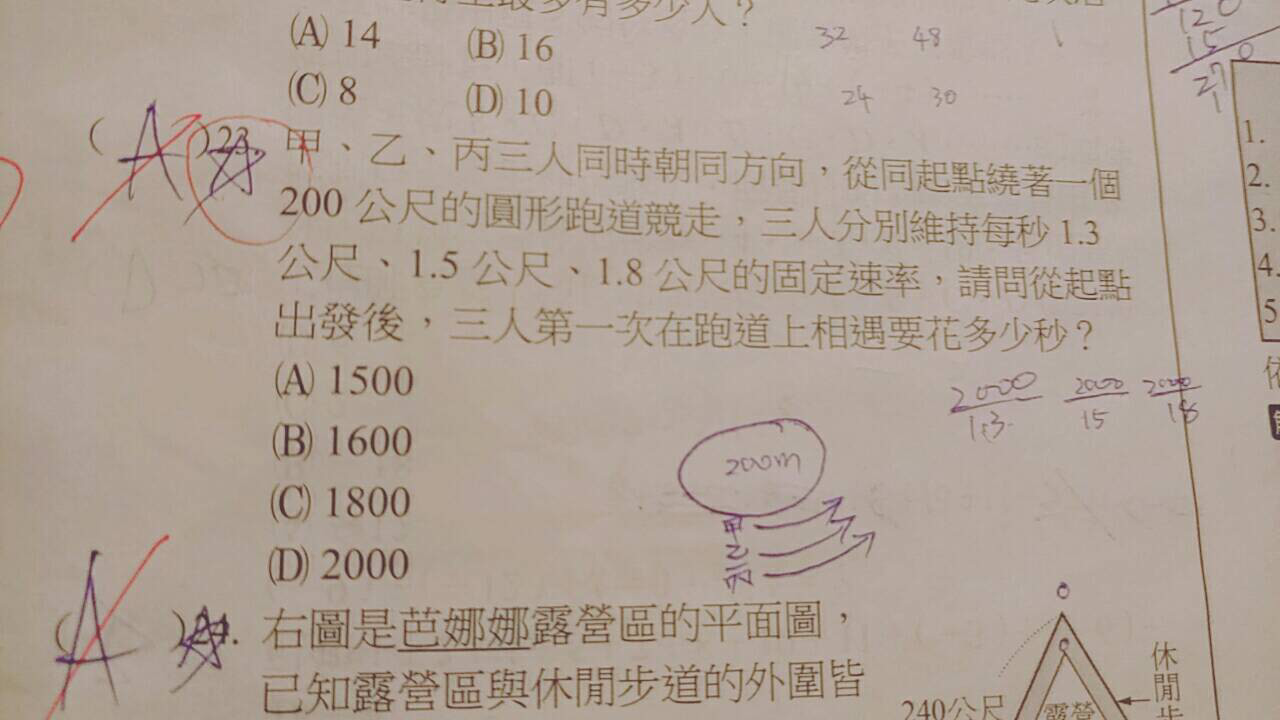 最多有多少人？
(A) 14 (B) 16 32 48
(C) 8 (D) 10 24 30
120
15
1.
2.
3.
4.
5
( A )23. 甲、乙、丙三人同時朝同方向，從同起點繞著一個
200 公尺的圓形跑道競走，三人分別維持每秒 1.3
公尺、1.5 公尺、1.8 公尺的固定速率，請問從起點
出發後，三人第一次在跑道上相遇要花多少秒？
(A) 1500
(B) 1600
(C) 1800
(D) 2000
2000/1.3 2000/15 2000/18
200m
甲
乙
丙
( A ) 右圖是芭娜娜露營區的平面圖，
已知露營區與休閒步道的外圍皆
240公尺
露營
休閒步